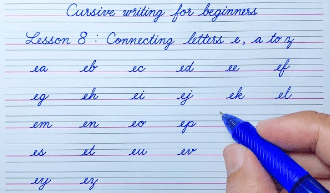 Cursive writing for beginners
Lesson 8 : Connecting letters e, a to z
ea eb ec ed ee ef
eg eh ei ej ek el
em en eo ep
es et eu ev
ey ez